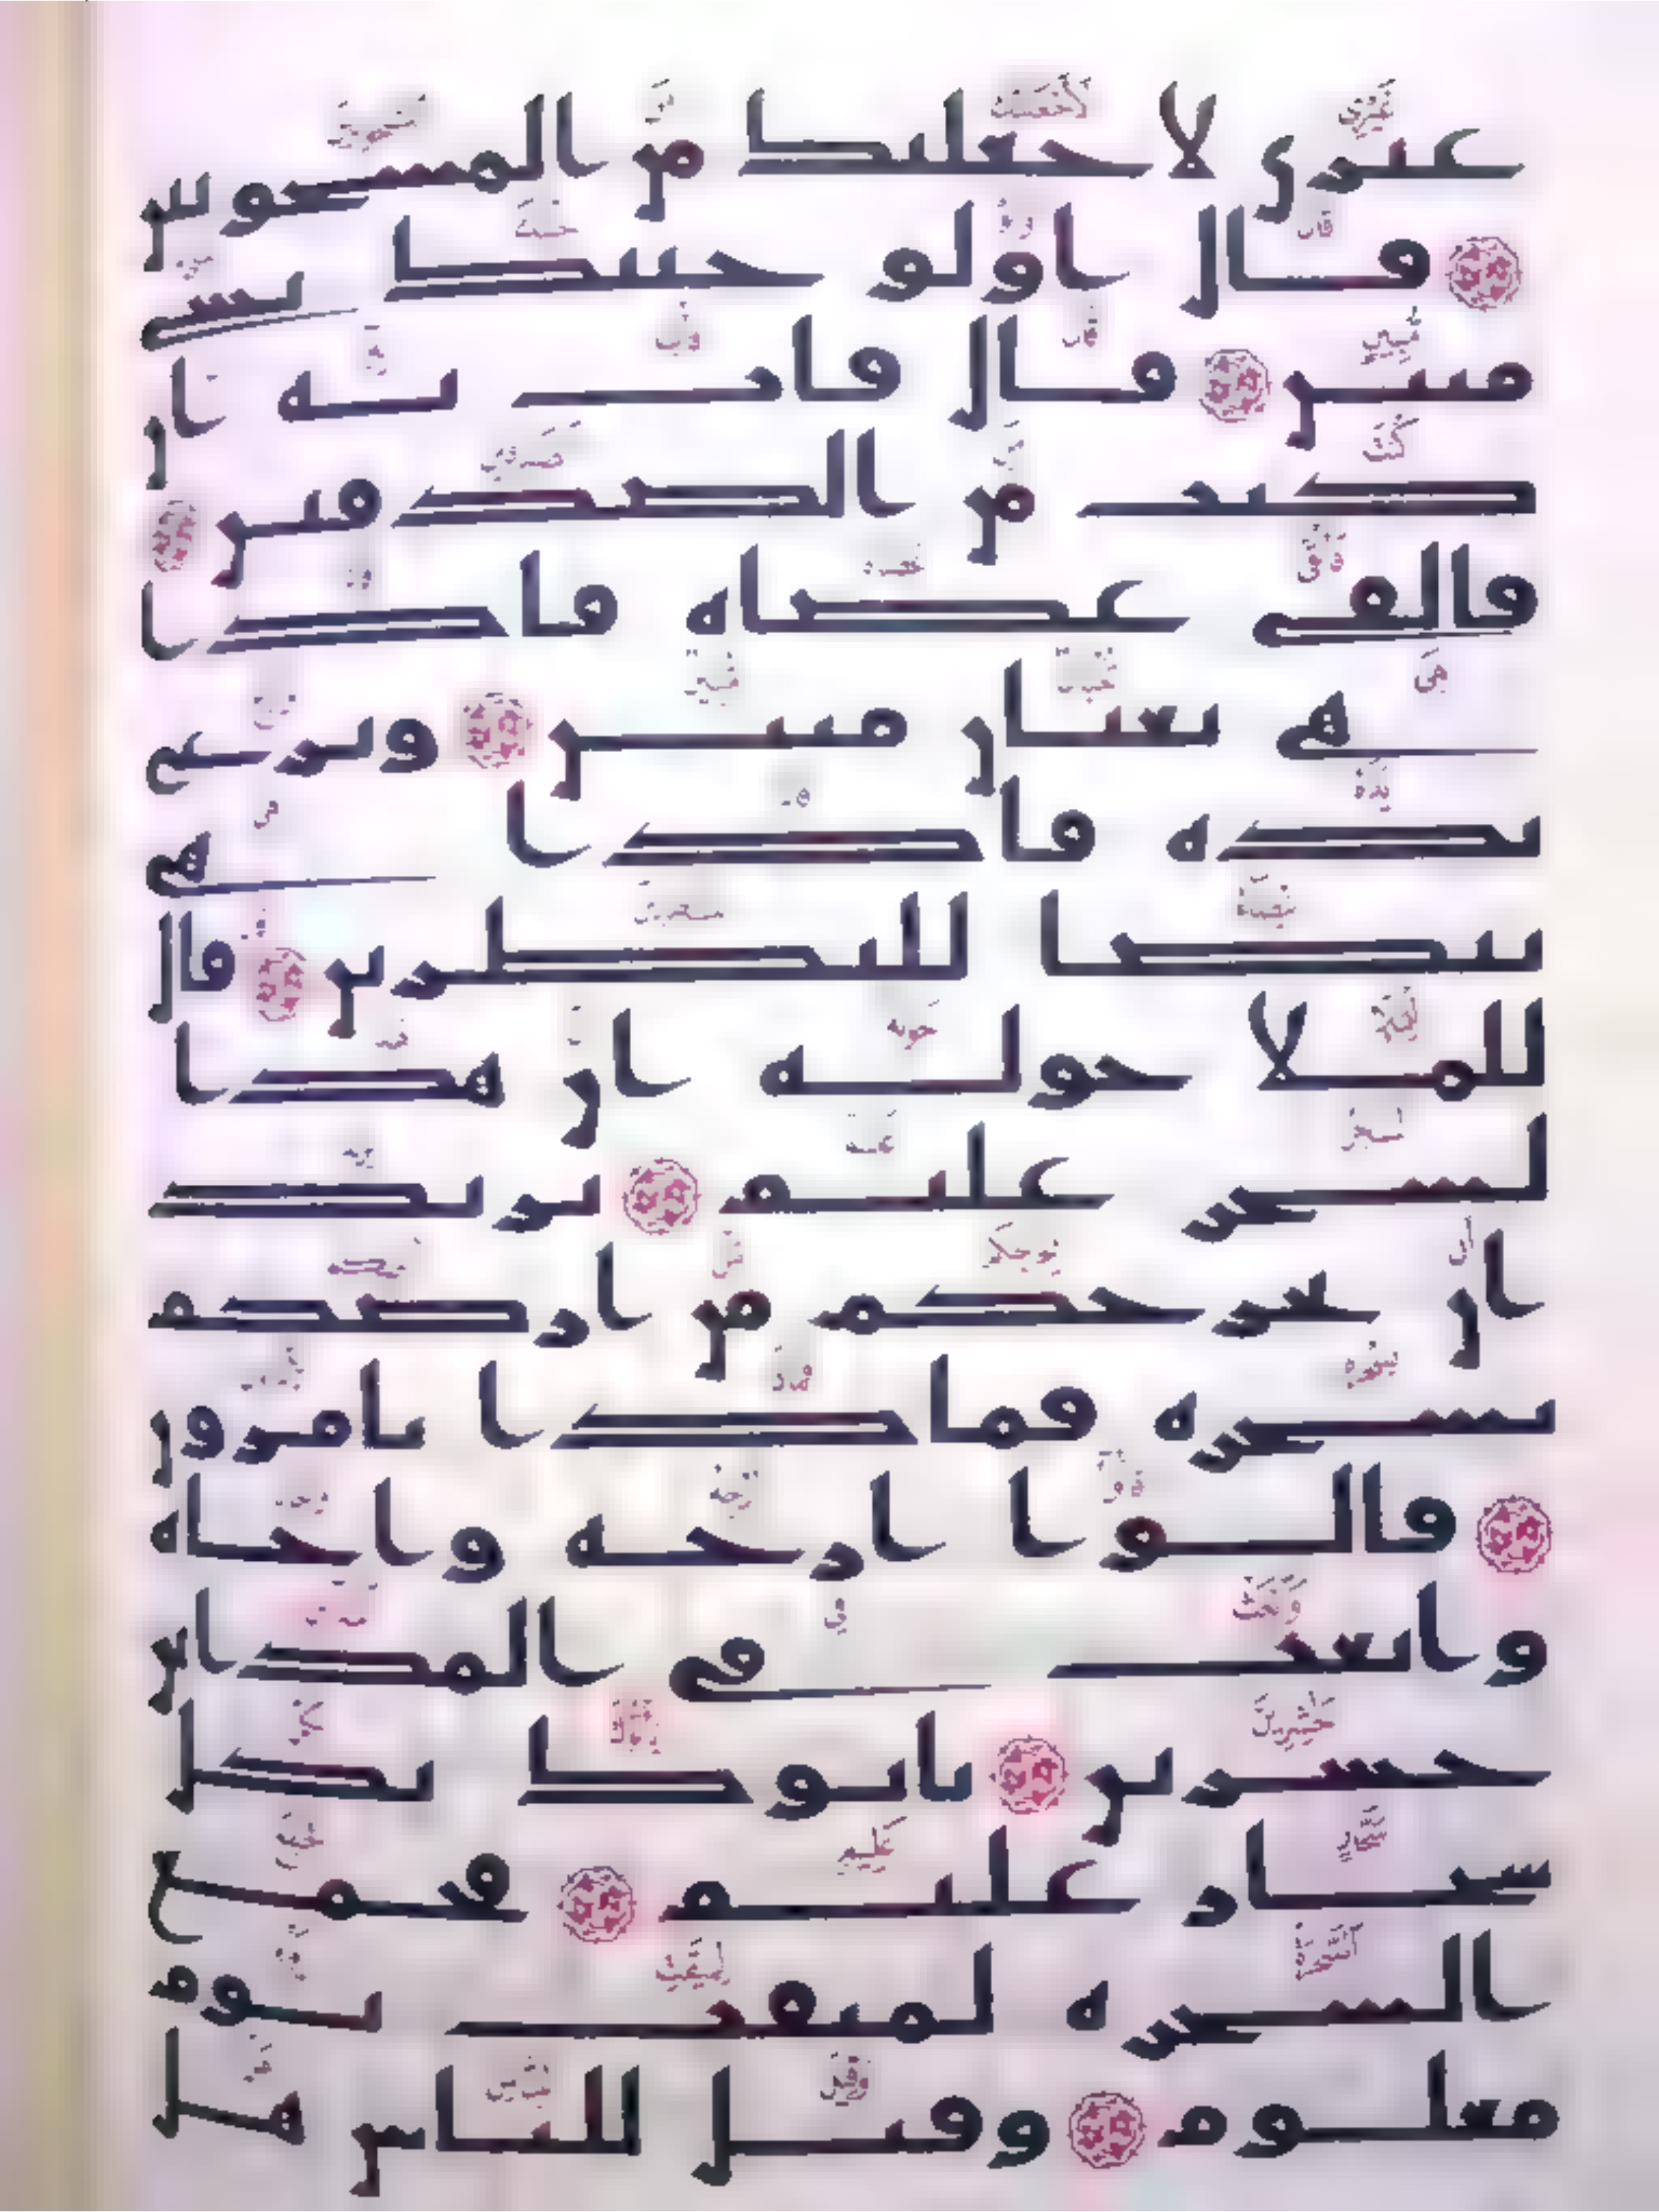 غيرى لاجعلنك من المسجونين
قال اولو جئتك بشى
مبين قال فات به ان
كنت من الصدقين
فالقى عصاه فاذا
هى ثعبان مبين ونزع
يده فاذا هى
بيضا للنظرين قال
للملا حوله ان هذا
لسحر عليم يريد
ان يخرجكم من ارضكم
بسحره فماذا تامرون
قالوا ارجه واخاه
وابعث فى المداين
حشرين ياتوك بكل
سحار عليم فجمع
السحره لميقت يوم
معلوم وقيل للناس هل